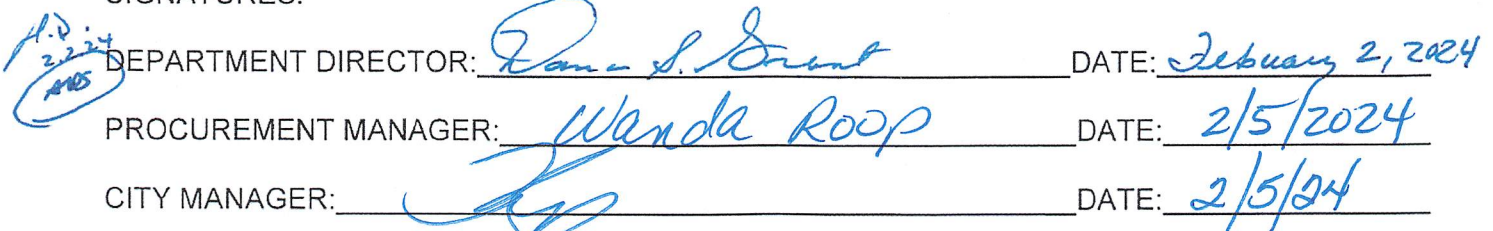 SIGNATURES:
2.2.24
DEPARTMENT DIRECTOR: S. Grant DATE: February 2, 2024
PROCUREMENT MANAGER: Wanda Roop DATE: 2/5/2024
CITY MANAGER: DATE: 2/5/24